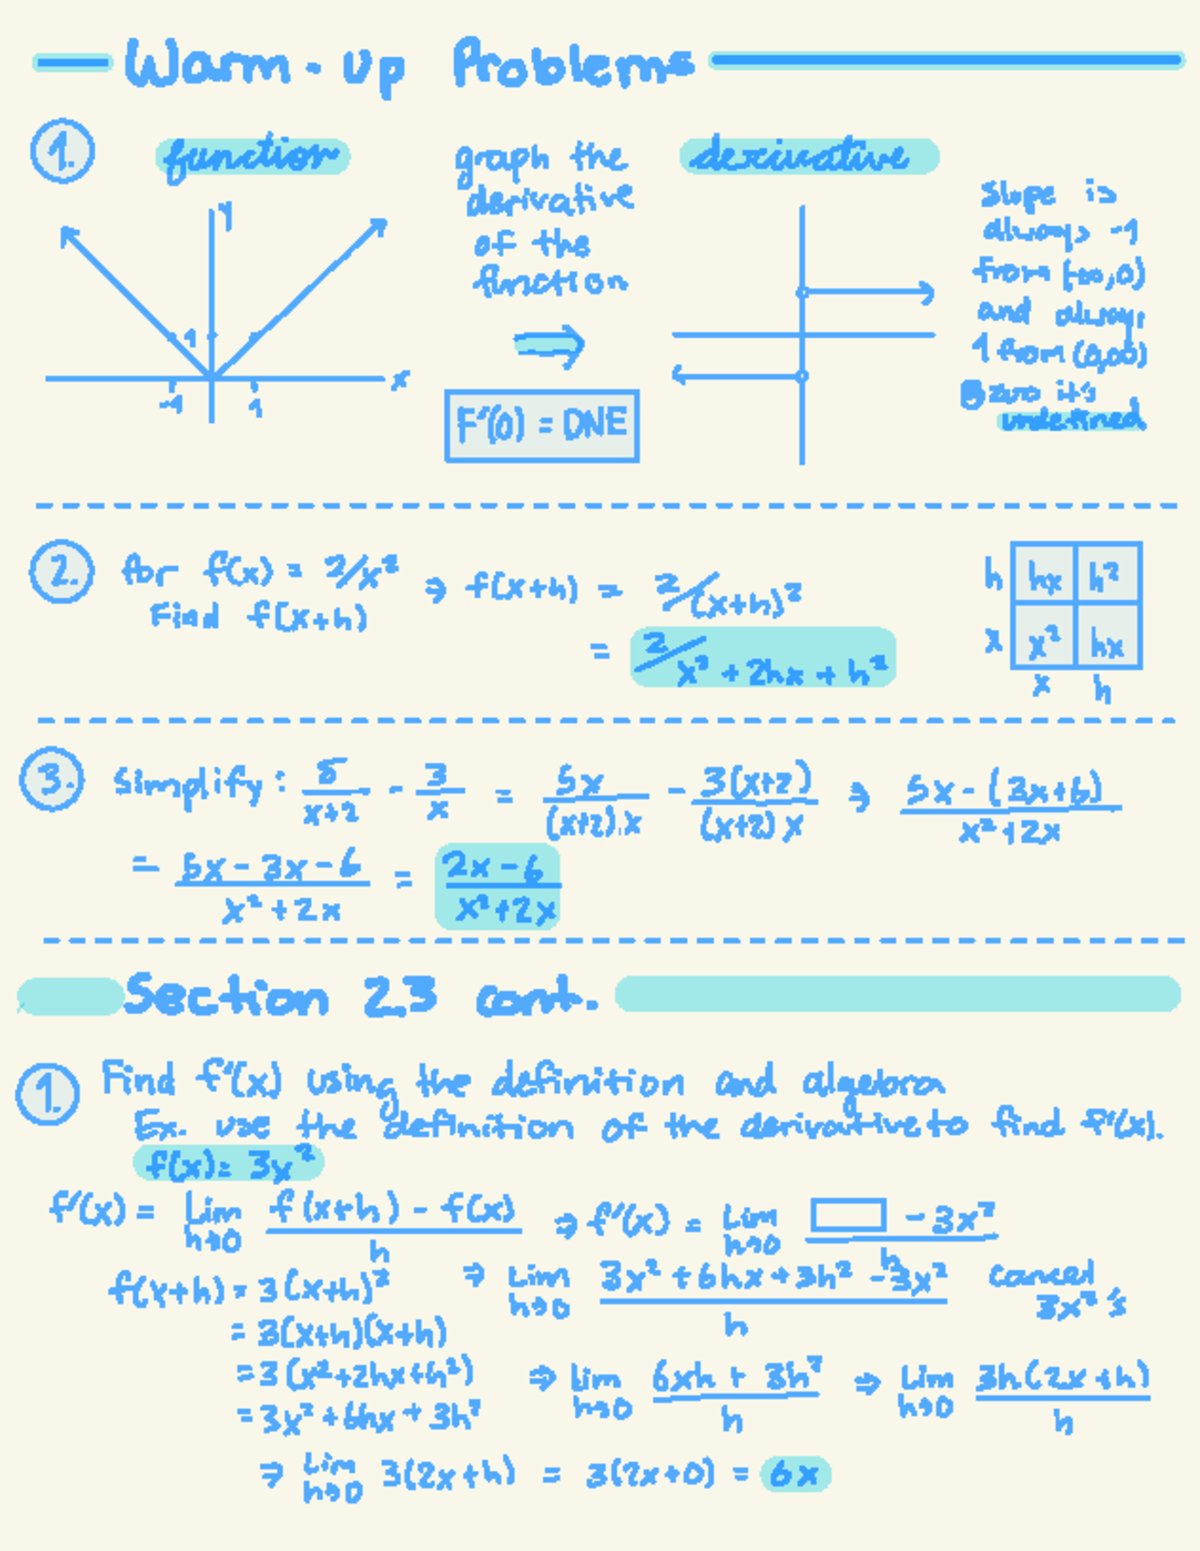 Warm-up Problems
1. function
y
1
-1 1 x
graph the
derivative
of the
function
⇒
F'(0) = DNE
derivative
slope is
always -1
from (-∞,0)
and always
1 from (0,∞)
@ zero it's
undefined
2. for f(x) = 2/x²
Find f(x+h)
⇒ f(x+h) = 2/(x+h)²
= 2/x²+2hx+h²
h hx h²
x x² hx
x h
3. Simplify: 5/x+2 - 3/x = 5x/(x+2).x - 3(x+2)/(x+2)x ⇒ 5x-(3x+6)/x²+2x
= 5x-3x-6/x²+2x = 2x-6/x²+2x
Section 2.3 cont.
1. Find f'(x) using the definition and algebra
Ex. use the definition of the derivative to find f'(x).
f(x)= 3x²
f'(x) = Lim h→0 f(x+h)-f(x)/h ⇒ f'(x) = Lim h→0 □ -3x²/h
f(x+h) = 3(x+h)²
= 3(x+h)(x+h)
= 3(x²+2hx+h²)
= 3x²+6hx+3h²
⇒ Lim h→0 3x²+6hx+3h²-3x²/h cancel
3x²'s
⇒ Lim h→0 6xh+3h²/h ⇒ Lim h→0 3h(2x+h)/h
⇒ Lim h→0 3(2x+h) = 3(2x+0) = 6x